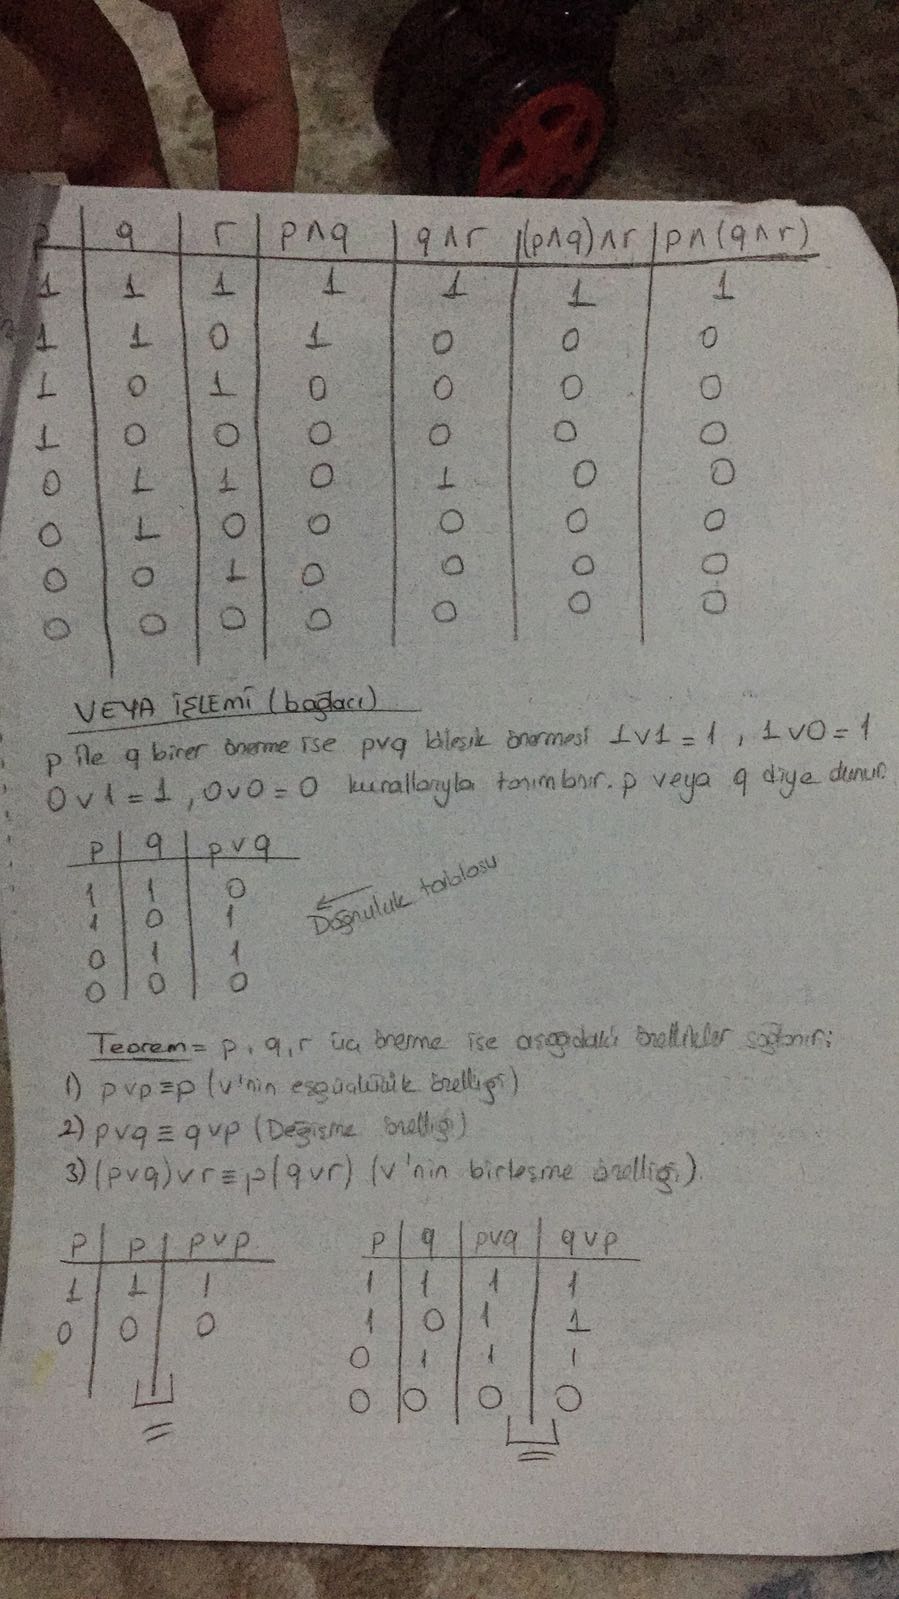 p | q | r | p∧q | q∧r | (p∧q)∧r | p∧(q∧r)
1 1 1 1 1 1 1
1 1 0 1 0 0 0
1 0 1 0 0 0 0
1 0 0 0 0 0 0
0 1 1 0 1 0 0
0 1 0 0 0 0 0
0 0 1 0 0 0 0
0 0 0 0 0 0 0
VEYA İŞLEMİ (bağlacı)
p ile q birer önerme ise p∨q bileşik önermesi 1∨1=1, 1∨0=1
0∨1=1, 0∨0=0 kurallarıyla tanımlanır. p veya q diye okunur.
p | q | p∨q
1 1 0
1 0 1
0 1 1
0 0 0
Doğruluk tablosu
Teorem= p, q, r üç önerme ise aşağıdaki özellikler sağlanır:
1) p∨p≡p (∨'nin eşgüçlülük özelliği)
2) p∨q ≡ q∨p (Değişme özelliği)
3) (p∨q)∨r ≡ p(q∨r) (∨'nin birleşme özelliği).
p | p | p∨p
1 1 1
0 0 0
=
p | q | p∨q | q∨p
1 1 1 1
1 0 1 1
0 1 1 1
0 0 0 0
≡